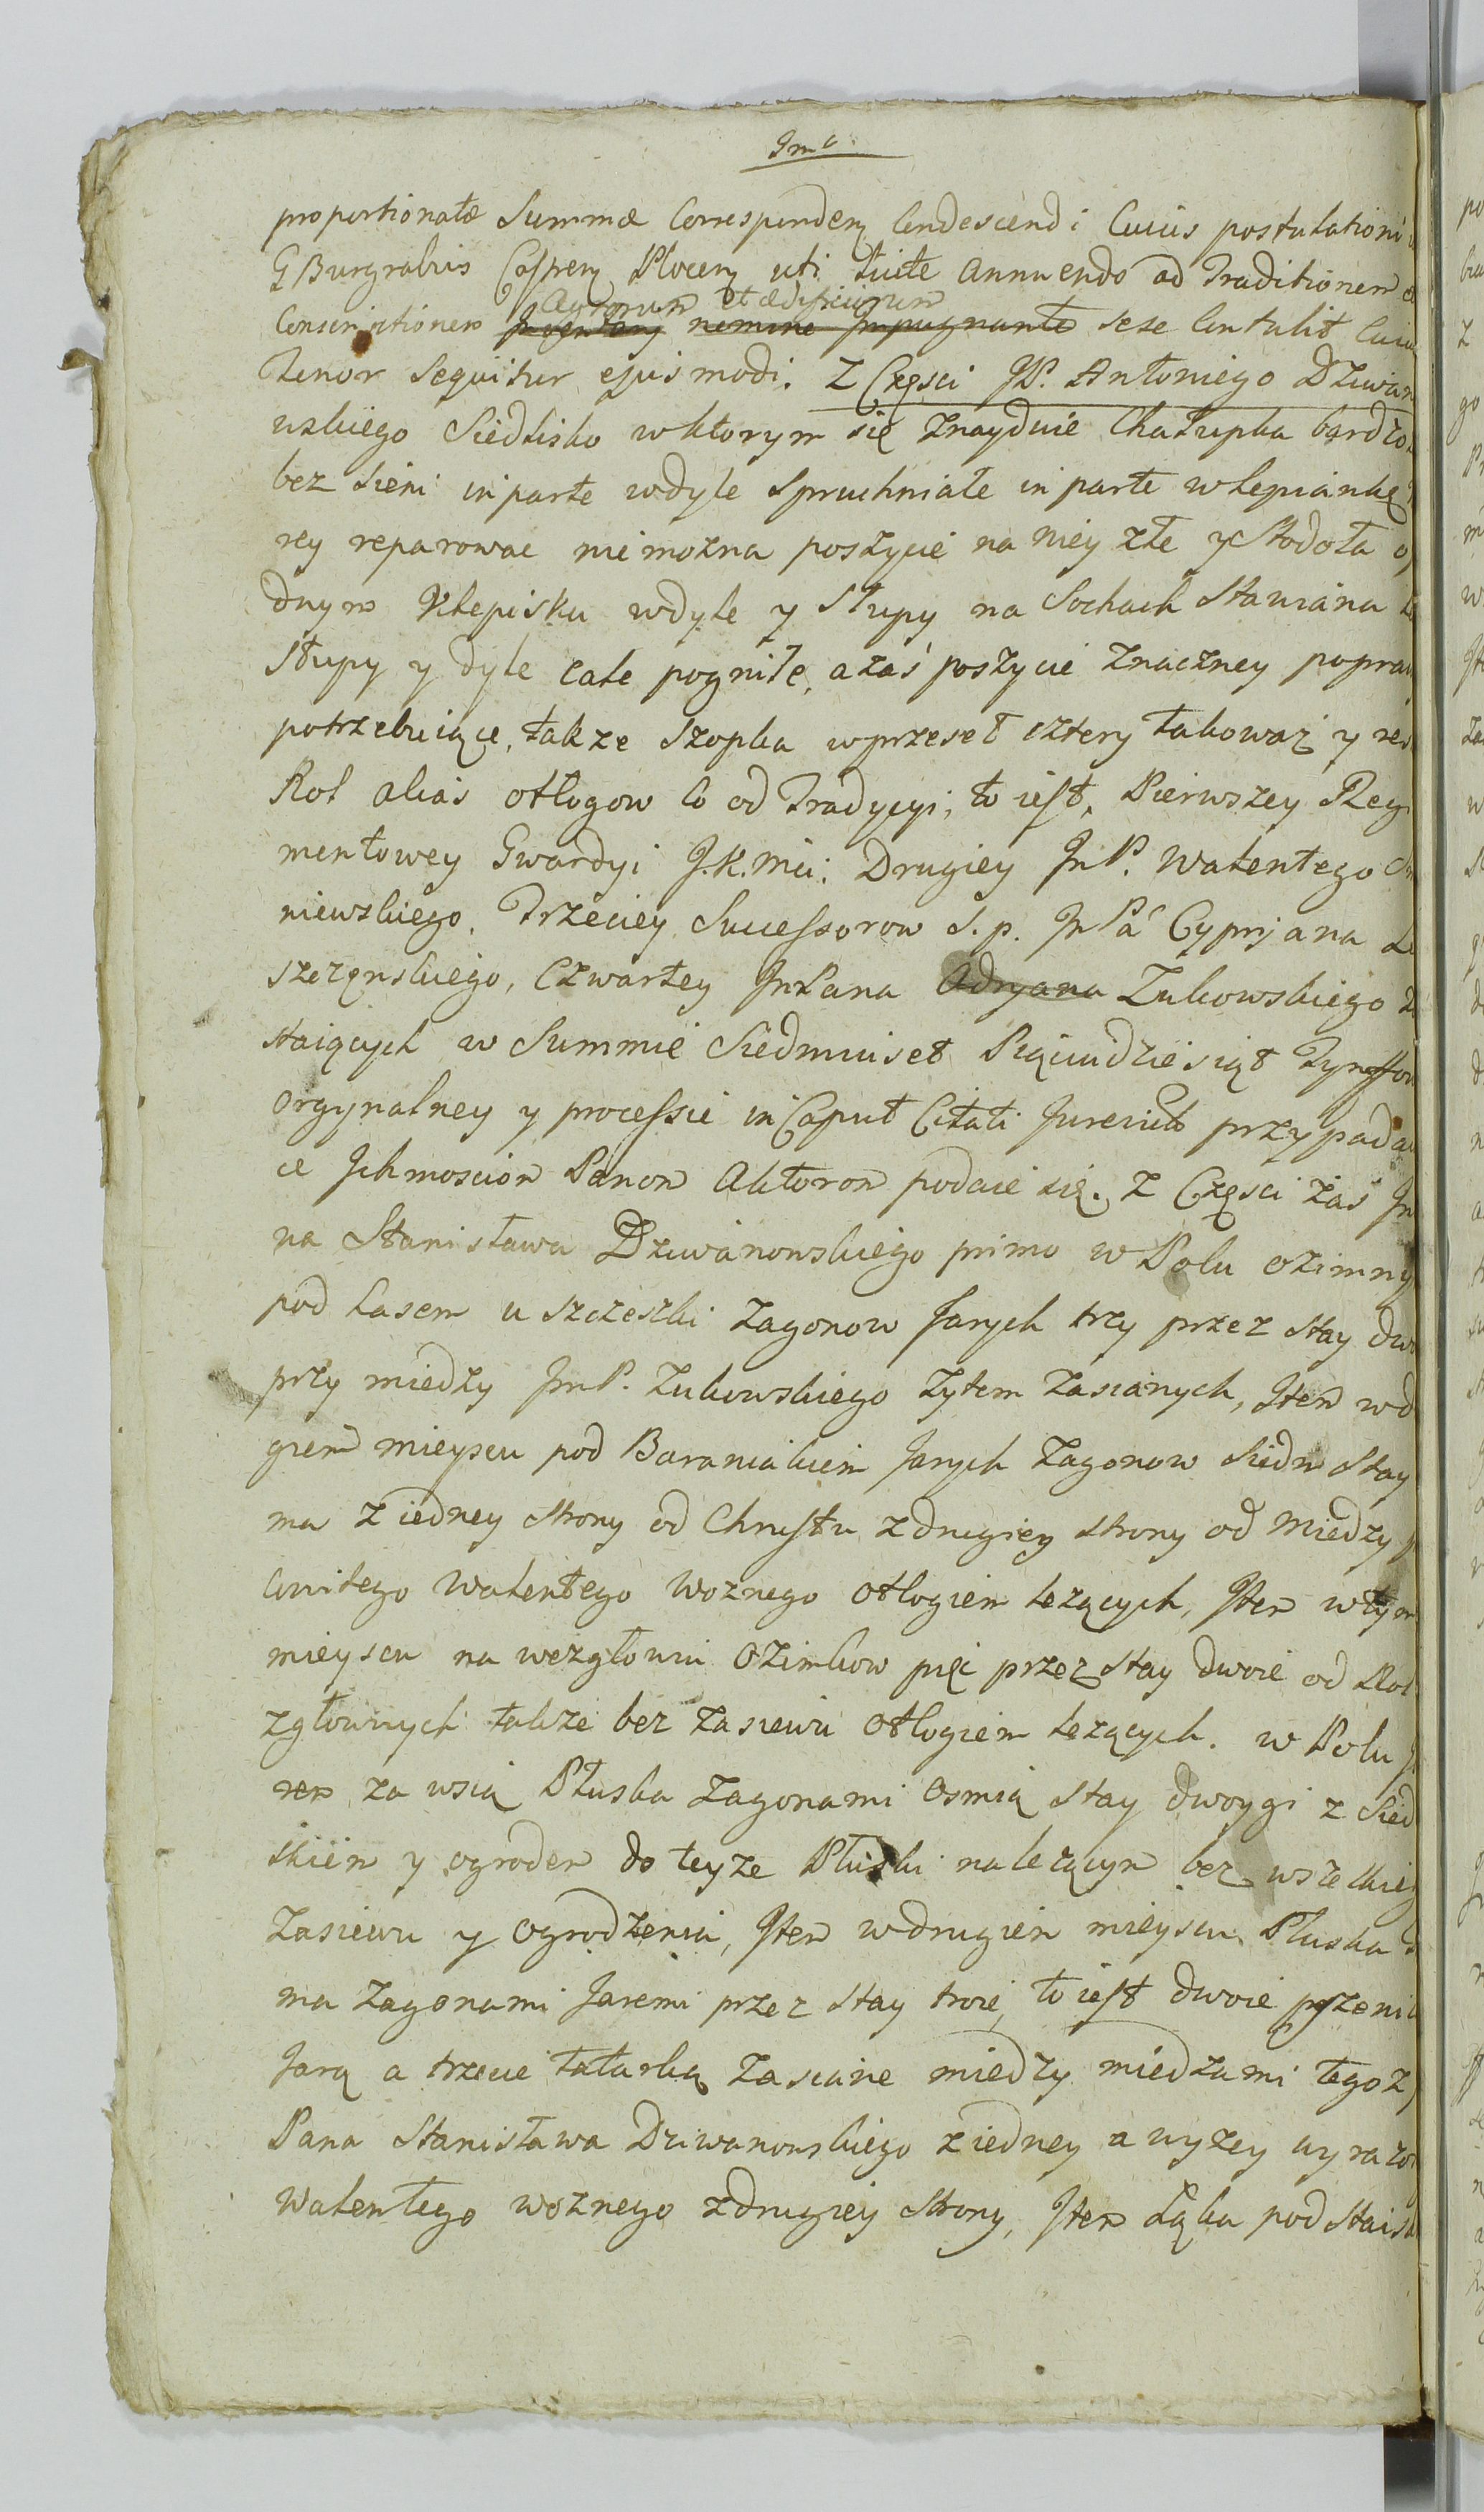 proportionatæ Summæ Corresponden Condescendi Cuius postulationi
G Burgrabius Caspren Plocen uti Juste annuendo ad Traditionem
agrorum et ædificiorum
Conscriptionem nemine impugnante sese Contulit Cuius
Tenor Sequitur ejusmodi. Z Częsci JP. Antoniego Dziwan
uskiego Siedlisko w ktorym się znayduie Chałupka bardzo
bez Sieni in parte wdyle Spruchniałe in parte w lepiankę
rey reparowac nie mozna poszycie na niey złe y Stodoła o
dnym Klepisku wdyle y Słupy na Sochach Stawiana
Słupy y dyle całe pogniłe, a zaś poszycie znaczney popraw
potrzebuiące, także szopka w przeseł cztery takowaz y
Rol alias odłogow Co od Tradycyi, to iest, Pierwszey Regi
mentowey Gwardyi J.K.Mci: Drugiey JmP. Walentego
niewskiego, Trzeciey Sucessorow S. p. JmPa Cypryana
szczęnskiego, Czwartey JmPana Adryana Zukowskiego
staiących w Summie Siedmiuset Pięciudziesiąt Tynffow
orgynalney y processie in Caput Citati Jurevict przypada
ce Ichmosciom Panom Aktorom podaie się. Z Częsci zaś Jm
na Stanisława Dziwanowskiego primo w Polu ozimny
pod Lasem u Szczeszki Zagonow Jarych trzy przez Stay dwo
przy miedzy JmP. Zukowskiego Zytem Zasianych, Item wd
giem mieyscu pod Baraniakiem Jarych Zagonow Siedm Stay
ma z iedney Strony od Chrustu z drugiey strony od Miedzy
cowitego Walentego Woznego Odłogiem leżących, Item w tym
mieyscu na wezgłowiu Ozimkow pięc przez Stay dwoie od Rol
zgłownych takze bez Zasiewu Odłogiem leżących. w Polu J
rem za wsią Płuska Zagonami Osmią Stay dwoygi z Sied
skiem y ogrodem do teyze Płuski należącym bez wszelkieg
Zasiewu y Ogrodzenia, Item wdrugiem mieyscu Płuska
ma Zagonami Jaremi przez Stay troie, to iest dwoie pszenic
Jarą a trzecie tatarką Zasiane miedzy miedzami tegoz
Pana Stanisława Dziwanowskiego z iedney a wyzey wyrazo
Walentego woznego z drugiey Strony, Item Łąka pod Stais